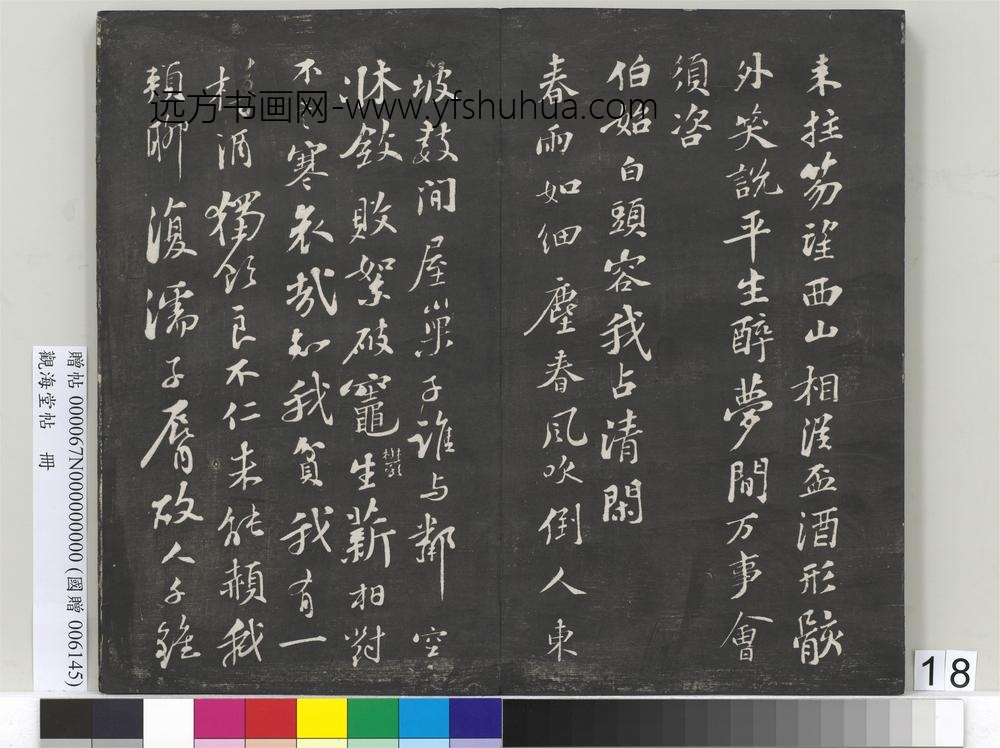 来拄笏望西山相從盃酒形骸
外笑說平生醉夢間万事會
須咨
伯始白頭容我占清閑
春雨如細塵春風吹倒人東
坡數間屋巢子誰与鄰空
牀斂敗絮破竈生鬱薪相對
不言寒哀哉知我貧我有一
瓢酒獨飲良不仁未能赬我
頰聊復濡子脣故人千鍾
远方书画网-www.yfshuhua.com
贈帖 000067N000000000 (國贈 006145)
觀海堂帖 冊
18